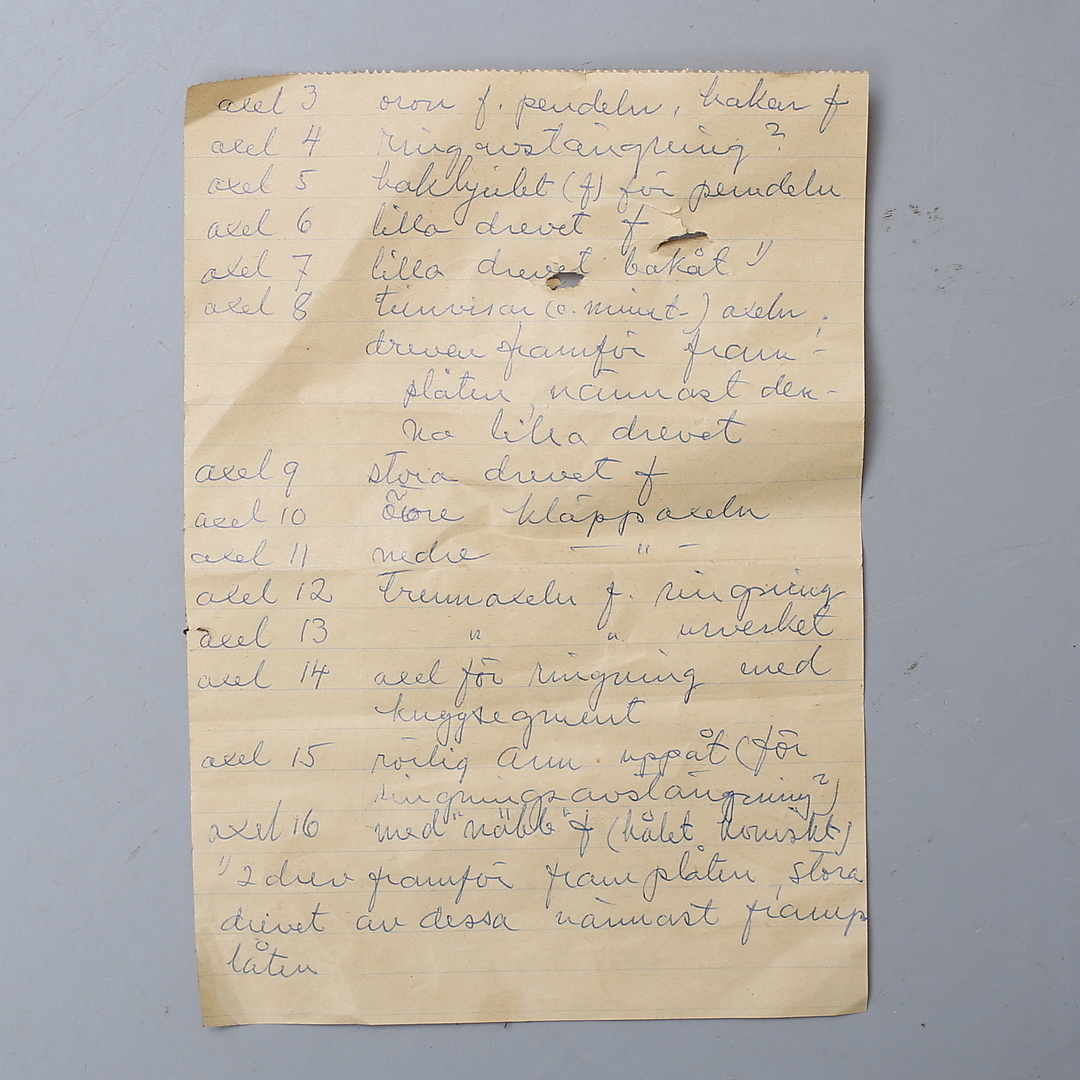 axel 3 oron f. pendeln, hakar f
axel 4 ringavstängning?
axel 5 hakhjulet (f) för pendeln
axel 6 lilla drevet f
axel 7 lilla drevet bakåt 1)
axel 8 timvisar (o. minut-) axeln.
dreven framför fram-
plåten, närmast den-
na lilla drevet
axel 9 stora drevet f
axel 10 övre kläppaxeln
axel 11 nedre — " —
axel 12 Trumaxeln f. ringning
axel 13 " " urverket
axel 14 axel för ringning med
kuggsegment
axel 15 rörlig arm uppåt (för
ringningsavstängning?)
axel 16 med "näbb" f (hålet koniskt)
1) 2 drev framför framplåten, stora
drevet av dessa närmast framp
låten